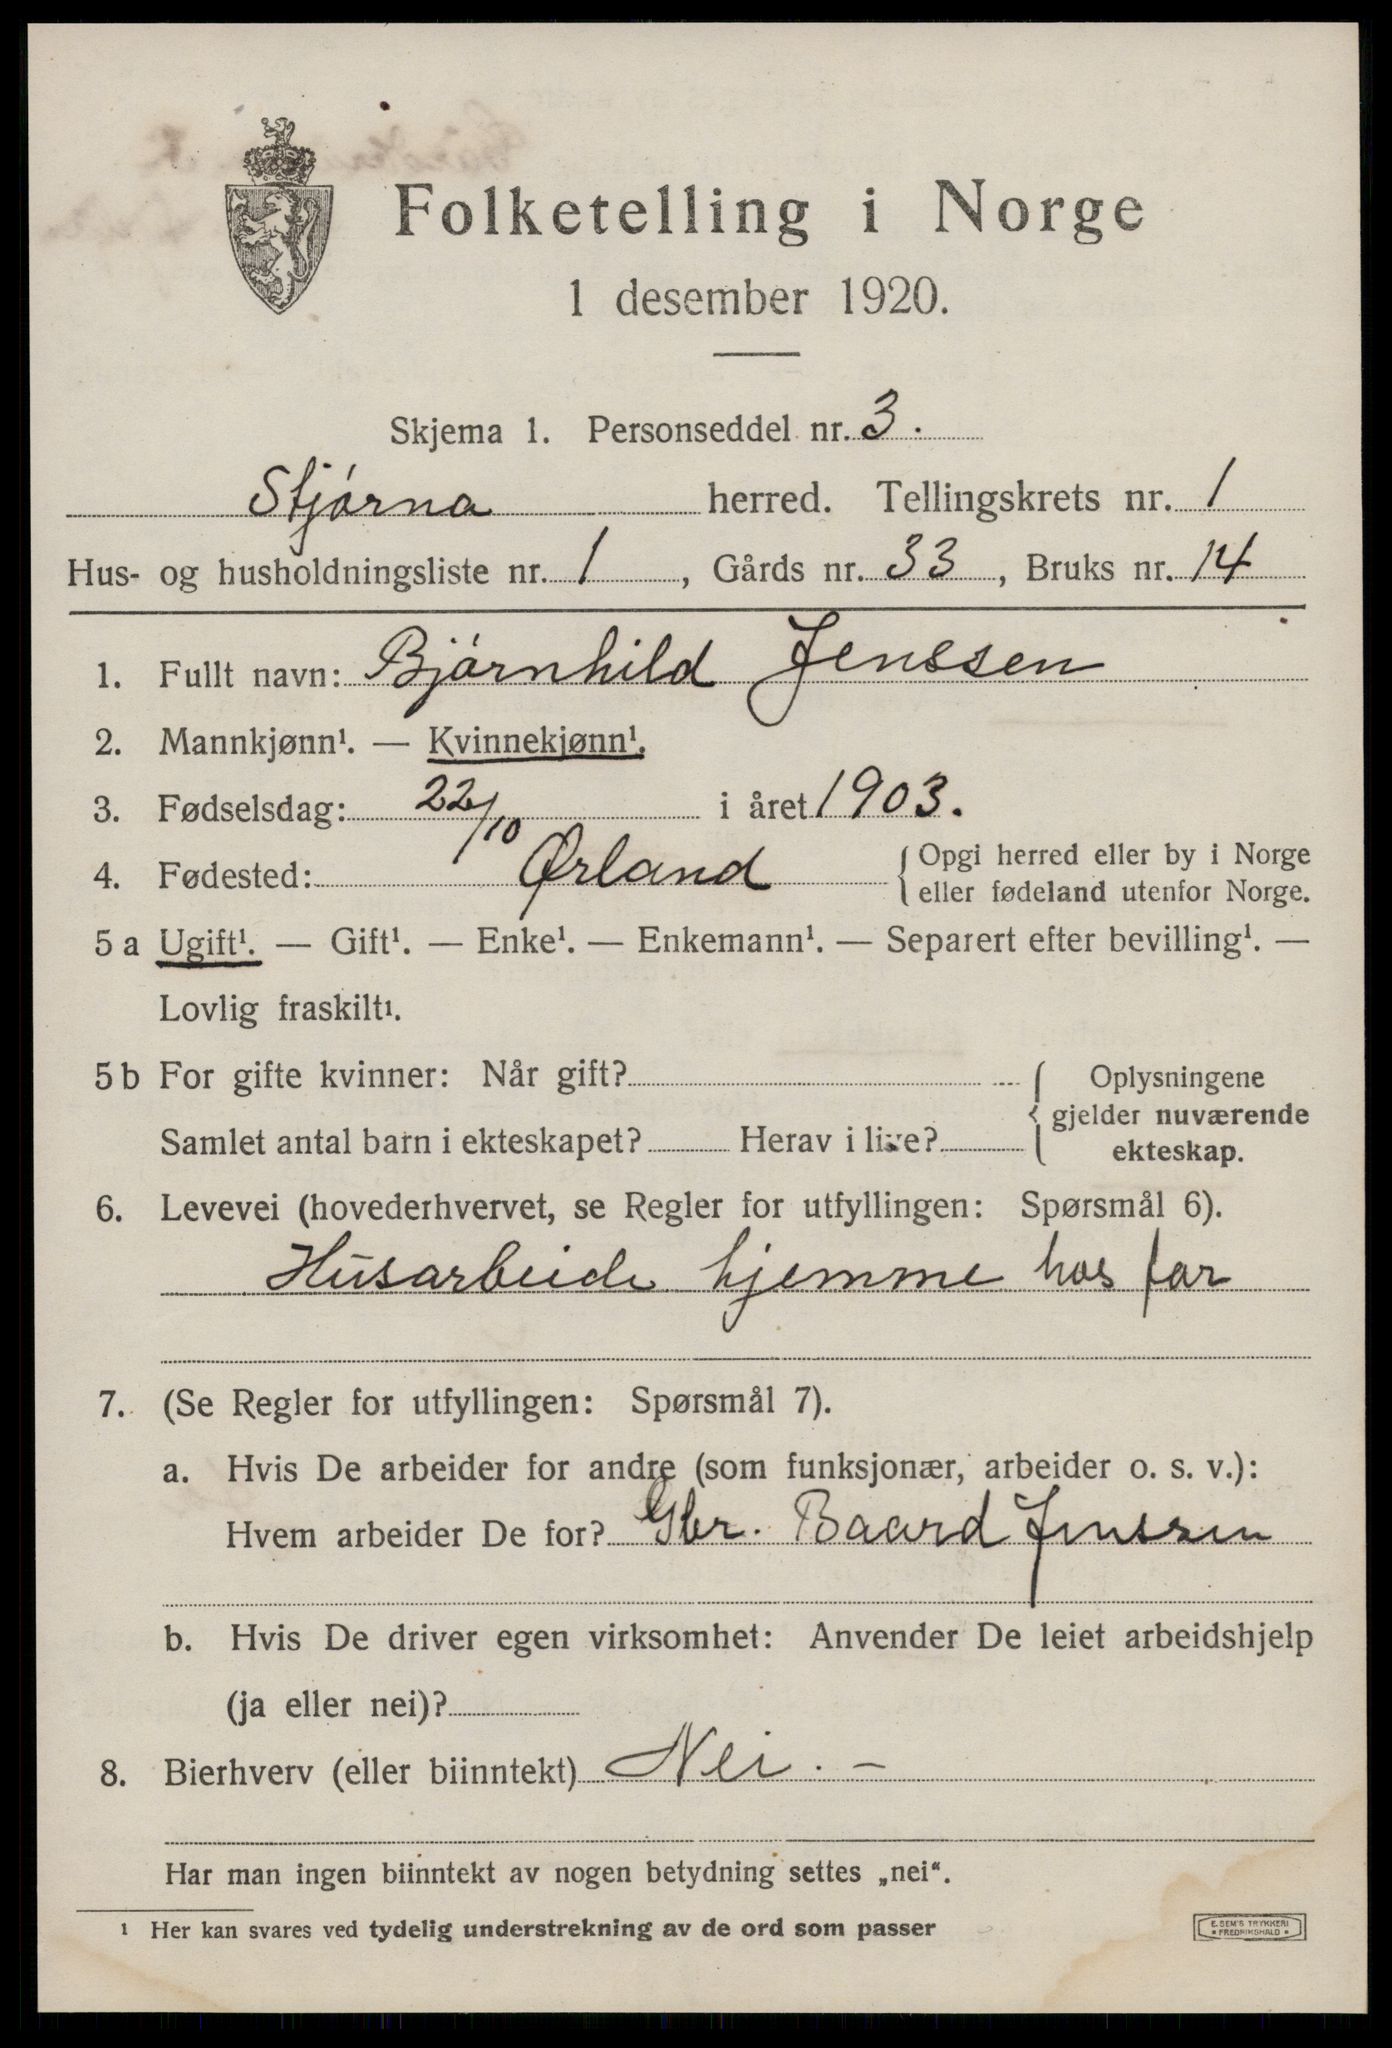 Folketelling i Norge
1 desember 1920.
Skjema 1. Personseddel nr. 3.
Stjórna herred. Tellingskrets nr. 1
Hus- og husholdningsliste nr. 1, Gårds nr. 33, Bruks nr. 14
1. Fullt navn: Bjórnhild Jenssen
2. Mannkjønn¹. — Kvinnekjønn¹.
3. Fødselsdag: 22/10 i året 1903.
4. Fødested: Ørland { Opgi herred eller by i Norge
eller fødeland utenfor Norge.
5 a Ugift¹. — Gift¹. — Enke¹. — Enkemann¹. — Separert efter bevilling¹. —
Lovlig fraskilt¹.
5 b For gifte kvinner: Når gift?
Samlet antal barn i ekteskapet? Herav i live?
{ Oplysningene
gjelder nuværende
ekteskap.
6. Levevei (hovederhvervet, se Regler for utfyllingen: Spørsmål 6).
Husarbeide hjemme hos far
7. (Se Regler for utfyllingen: Spørsmål 7).
a. Hvis De arbeider for andre (som funksjonær, arbeider o. s. v.):
Hvem arbeider De for? Gbr. Baard Jenssen
b. Hvis De driver egen virksomhet: Anvender De leiet arbeidshjelp
(ja eller nei)?
8. Bierhverv (eller biinntekt) Nei. –
Har man ingen biinntekt av nogen betydning settes „nei“.
¹ Her kan svares ved tydelig understrekning av de ord som passer
E. SEM'S TRYKKERI
* FREDRIKSHALD *